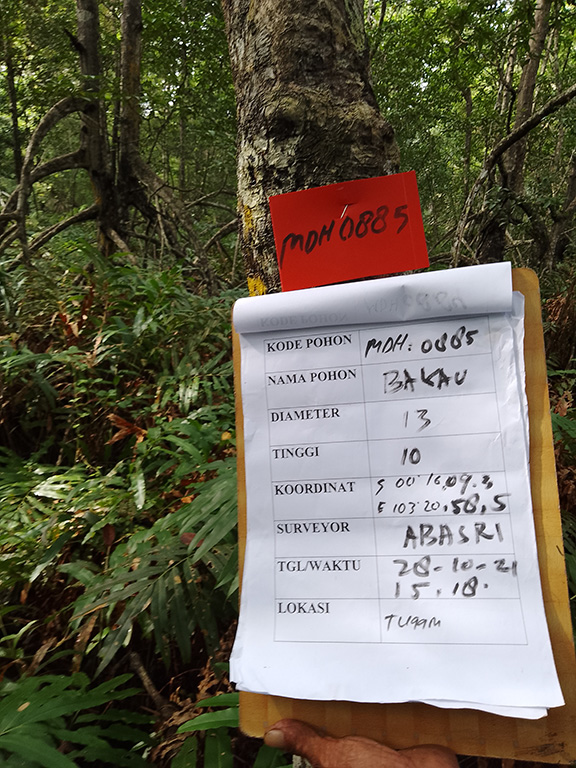 MDH 0885
KODE POHON MDH: 0885
NAMA POHON BAKAU
DIAMETER 13
TINGGI 10
KOORDINAT S 00° 16, 09. 3,
E 103° 20, 58, 5
SURVEYOR ABASRI
TGL/WAKTU 28-10-21
15.18.
LOKASI TUGAM